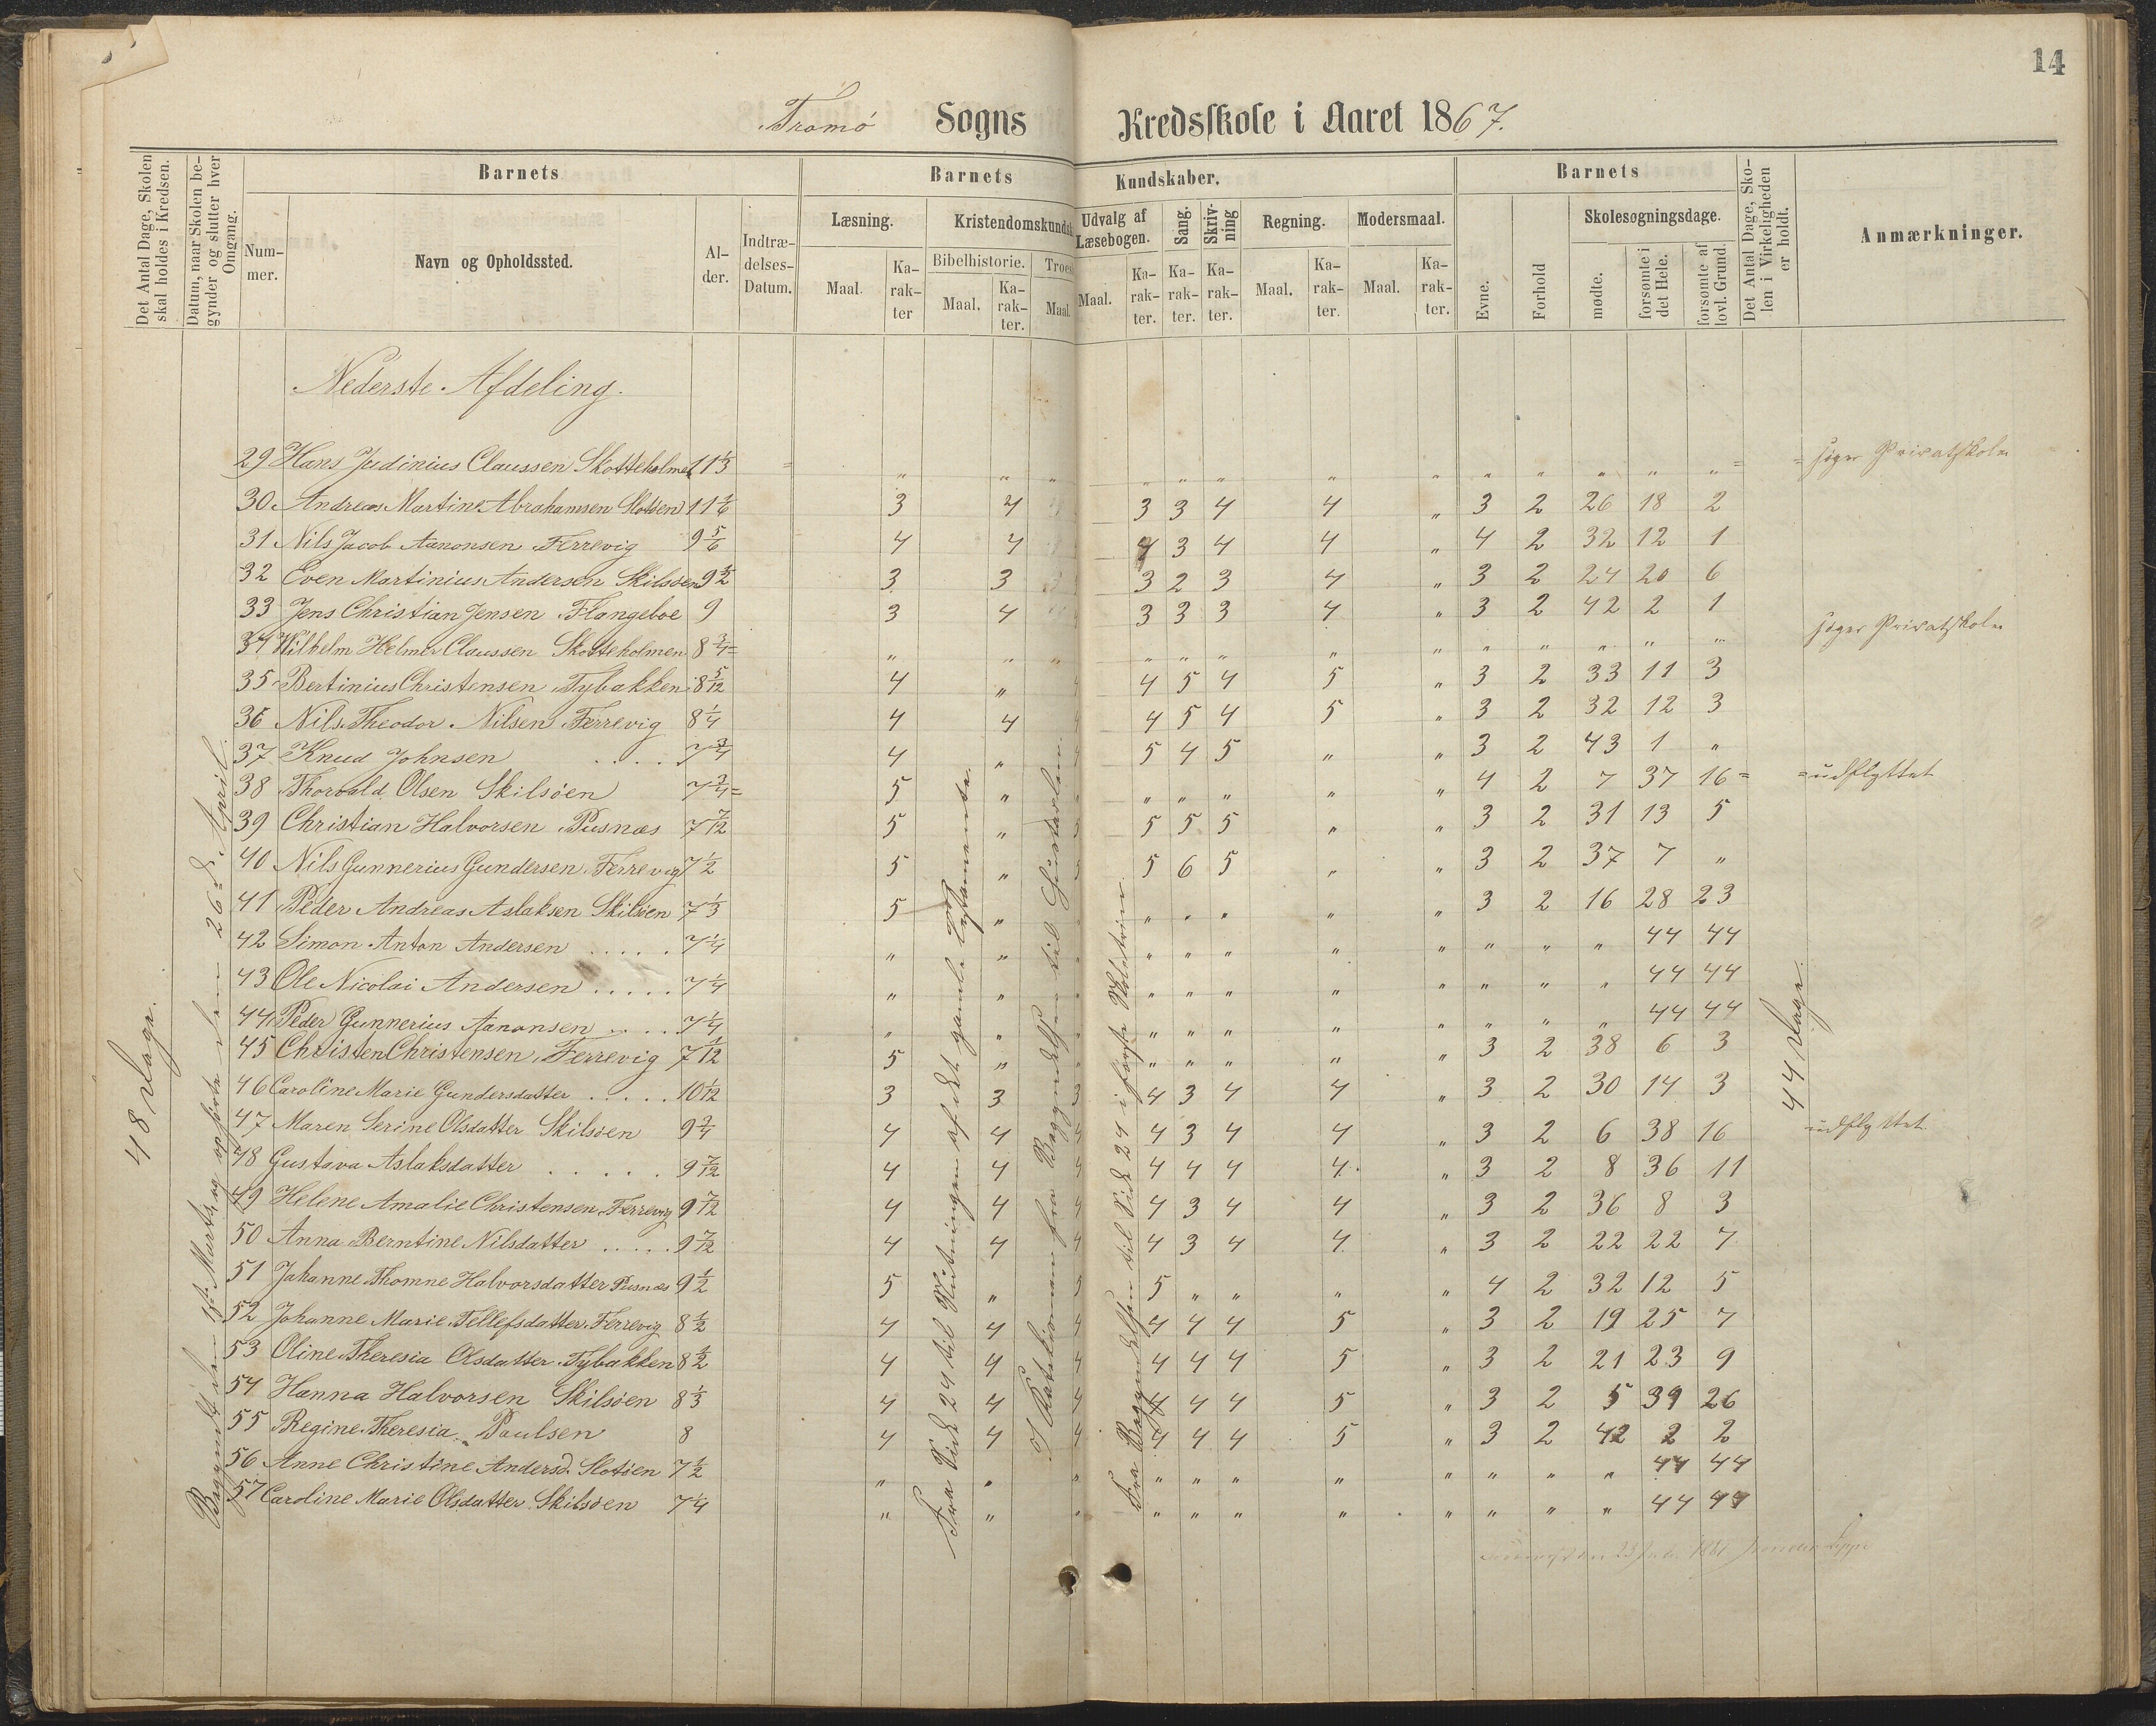 14
Tromø Sogns Kredsskole i Aaret 1867.
Det Antal Dage, Skolen skal holdes i Kredsen.
Datum, naar Skolen begynder og slutter hver Omgang.
Barnets
Nummer.
Navn og Opholdssted.
Alder.
Indtrædelses-Datum.
Barnets Kundskaber.
Læsning.
Maal.
Karakter
Kristendomskundsk
Bibelhistorie.
Maal.
Karakter.
Troes
Maal.
Udvalg af Læsebogen.
Maal.
Karakter.
Sang.
Karakter.
Skrivning
Karakter.
Regning.
Maal.
Karakter.
Modersmaal.
Maal.
Karakter.
Barnets
Evne.
Forhold
Skolesøgningsdage.
mødte.
forsømte i det Hele.
forsømte af lovl. Grund.
Det Antal Dage, Skolen i Virkeligheden er holdt.
Anmærkninger.
Nederste Afdeling.
29 Hans Judinius Claussen Skotteholmen 11 1/3 = " " " " " " " " " " " " " = = søger Privatskolen
30 Andreas Martin Abrahamsen Slotøen 11 1/6 3 4 3 3 4 4 " 3 2 26 18 2
31 Nils Jacob Aanonsen Færrevig 9 5/6 4 4 4 3 4 4 " 4 2 32 12 1
32 Even Martinius Andersen Skilsøen 9 1/2 3 3 3 2 3 4 " 3 2 24 20 6
33 Jens Christian Jensen Flangeboe 9 3 4 3 3 3 4 " 3 2 42 2 1
34 Wilhelm Helmer Claussen Skotteholmen 8 3/4 = " " " " " " " " " " " " " søger Privatskolen
35 Bertinius Christensen Tybakken 8 5/12 4 " 4 4 5 4 5 " 3 2 33 11 3
36 Nils Theodor Nilsen Færrevig 8 1/4 4 4 4 4 5 4 5 " 3 2 32 12 3
37 Knud Johnsen . . . . 7 3/4 4 " 4 5 4 5 " " 3 2 43 1 "
38 Thorvald Olsen Skilsøen 7 3/4 = 5 " " " " " " " 4 2 7 37 16 = = udflyttet
39 Christian Halvorsen Pusnæs 7 7/12 5 " 5 5 5 5 " " 3 2 31 13 5
40 Nils Gunnerius Gundersen Færrevig 7 1/2 5 " 5 5 6 5 " " 3 2 37 7 "
41 Peder Andreas Aslaksen Skilsøen 7 1/3 5 " " " " " " " 3 2 16 28 23
42 Simon Anton Andersen . . . . . 7 1/4 " " " " " " " " " " " 44 44
43 Ole Nicolai Andersen . . . . . 7 1/4 " " " " " " " " " " " 44 44
44 Peder Gunnerius Aanonsen . . . . 7 1/4 " " " " " " " " " " " 44 44
45 Christen Christensen Færrevig 7 1/12 5 " " " " " " " 3 2 38 6 3
46 Caroline Marie Gundersdatter . . . . . 10 1/12 3 3 3 4 3 4 4 " 3 2 30 14 3
47 Maren Serine Olsdatter Skilsøen 9 3/4 4 4 4 4 3 4 4 " 3 2 6 38 16 udflyttet
48 Gustava Aslaksdatter . . . . . 9 7/12 4 4 4 4 4 4 4 " 3 2 8 36 11
49 Helene Amalie Christensen Færrevig 9 7/12 4 4 4 4 3 4 4 " 3 2 36 8 3
50 Anna Berntine Nilsdatter . . . . . 9 7/12 4 4 4 4 3 4 4 " 3 2 22 22 7
51 Johanne Thomne Halvorsdatter Pusnæs 9 1/2 5 " 5 5 " " " " 4 2 32 12 5
52 Johanne Marie Tellefsdatter Færrevig 8 1/2 4 4 4 4 4 4 5 " 3 2 19 25 7
53 Oline Theresia Olsdatter Tybakken 8 1/2 4 4 4 4 4 4 5 " 3 2 21 23 9
54 Hanna Halvorsen Skilsøen 8 1/3 4 4 4 4 4 4 5 " 3 2 5 39 26
55 Regine Theresia Paulsen 8 4 4 4 4 4 4 5 " 3 2 42 2 2
56 Anne Christine Andersd. Slotøen 7 1/2 " " " " " " " " " " " 44 44
57 Caroline Marie Olsdatter Skilsøen 7 1/4 " " " " " " " " " " " 44 44
48 Dage.
Begyndt den 1ste Marts, og ophørte den 26d April.
Fra Side 24 til Slutningen af det gamle Testamente.
I Katekismen fra Begyndelsen til Hustavlen.
Fra Begyndelsen til Side 24 i første Skoletrin.
44 Dage.